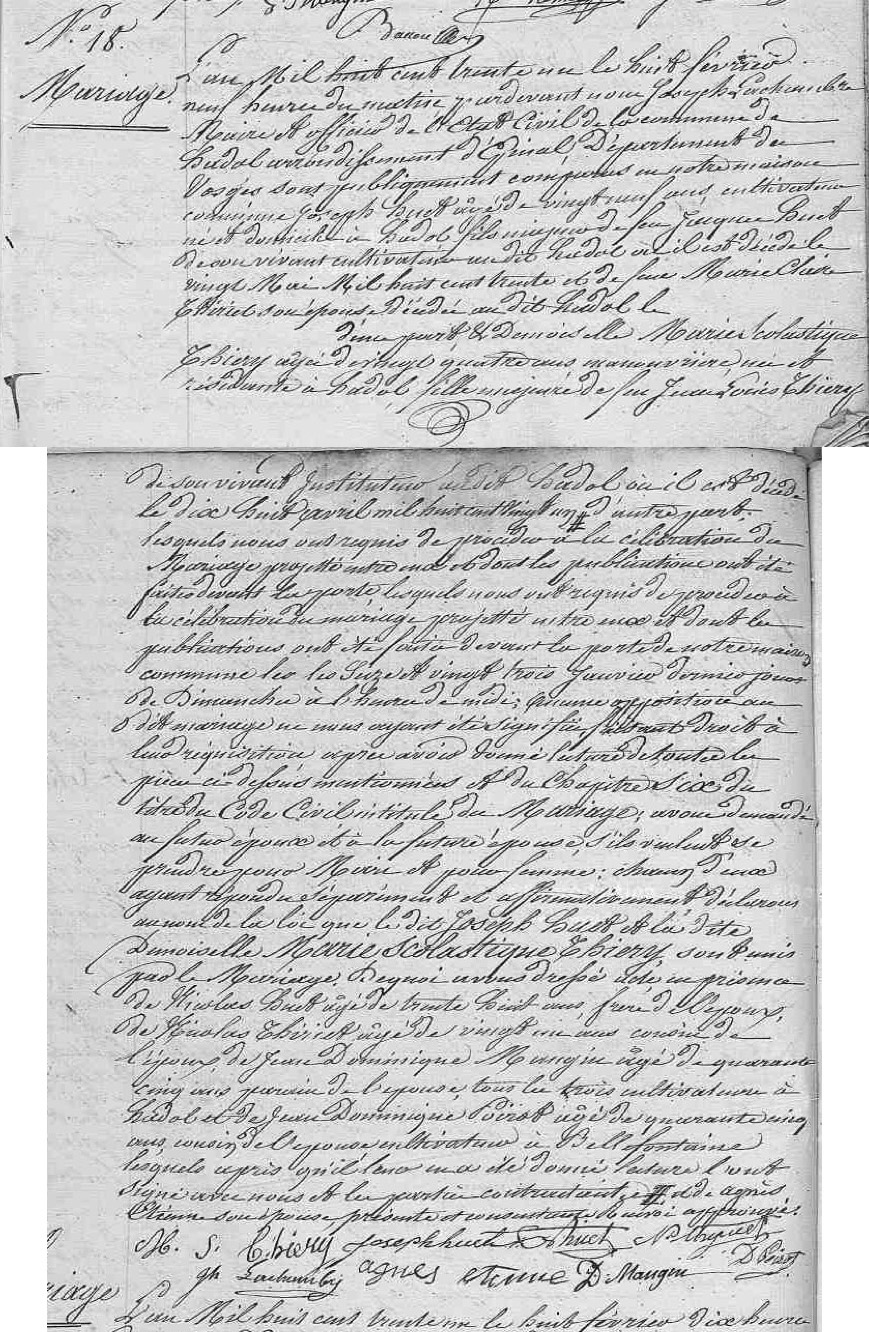 N.o 18.
Mariage.
L'an Mil huit cent trente un le huit février
neuf heures du matin pardevant nous Joseph Lachambre
Maire et officier de l'Etat Civil de la commune de
hadol arrondissement d'Epinal, Département des
Vosges sont publiquement comparus en notre maison
commune Joseph huet âgé de vingt neuf ans, cultivateur
né et domicilié à hadol fils majeur de feu Jacques huet
de son vivant cultivateur au dit hadol où il est décédé le
vingt Mai Mil huit cent trente et de feue Marie Claire
Thiriet son épouse décédée au dit hadol le
d'une part & Demoiselle Marie Scolastique
Thiery agée de vingt quatre ans manouvrière, née et
résidante à hadol fille majeure de feu Jean Louis Thiery
de son vivant Instituteur audit hadol où il est décédé
le dix huit avril mil huit cent vingt un # d'autre part.
lesquels nous ont requis de procéder à la célébration du
Mariage projetté entre eux et dont les publications ont été
faites devant la porte, lesquels nous ont requis de procéder à
la célébration du mariage projetté entre eux et dont les
publications ont été faites devant la porte de notre maison
commune les les Seize et vingt trois Janvier dernier jours
de Dimanche à l'heure de midi; aucune opposition au
dit mariage ne nous ayant été signifiée, faisant droit à
leur réquisition après avoir donné lecture de toutes les
pièces ci-dessus mentionnées et du chapitre six du
titre du Code Civil intitulé du Mariage; avons demandé
au futur époux et à la future épouse, s'ils veulent se
prendre pour Mari et pour femme: chacun d'eux
ayant répondu séparément et affirmativement déclarons
au nom de la loi que le dit Joseph huet et la dite
Demoiselle Marie Scolastique Thiery, sont unis
par le Mariage. De quoi avons dressé acte en présence
de Nicolas huet âgé de trente huit ans, frere de l'époux,
de Nicolas Thiriet âgé de vingt un ans cousin de
l'époux, de Jean Dominique Mangin âgé de quarante
cinq ans parain de l'epouse, tous les trois cultivateurs à
hadol et de Jean Dominique Poirot âgé de quarante cinq
ans cousin de l'epouse cultivateur à Bellefontaine
lesquels après qu'il leur en a été donné lecture l'ont
signé avec nous et les parties contractantes # et de agnès
Etienne son épouse présente et consentante. Renvoi approuvé.
M. S. Thiery Joseph huet N huet N Thiriet
Lachambre agnes etienne D Mangin D Poirot
Mariage
L'an Mil huit cent trente un le huit février dix heures